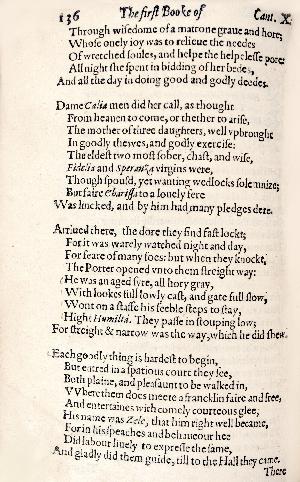 136 The first Booke of Cant. X.
Through wisedome of a matrone graue and hore;
Whose onely ioy was to relieue the needes
Of wretched soules, and helpe the helpelesse pore:
All night she spent in bidding of her bedes,
And all the day in doing good and godly deedes.
Dame Cælia men did her call, as thought
From heauen to come, or thether to arise,
The mother of three daughters, well vpbrought
In goodly thewes, and godly exercise:
The eldest two most sober, chast, and wise,
Fidelia and Speranza virgins were,
Though spousd, yet wanting wedlocks solemnize;
But faire Charissa to a louely fere
Was lincked, and by him had many pledges dere.
Arriued there, the dore they find fast lockt;
For it was warely watched night and day,
For feare of many foes: but when they knockt,
The Porter opened vnto them streight way:
He was an aged syre, all hory gray,
With lookes full lowly cast, and gate full slow,
Wont on a staffe his feeble steps to stay,
Hight Humiltá. They passe in stouping low;
For streight & narrow was the way, which he did shew.
Each goodly thing is hardest to begin,
But entred in a spatious court they see,
Both plaine, and pleasaunt to be walked in,
VVhere them does meete a francklin faire and free,
And entertaines with comely courteous glee,
His name was Zele, that him right well became,
For in his speaches and behaueour hee
Did labour liuely to expresse the same,
And gladly did them guide, till to the Hall they came.
There